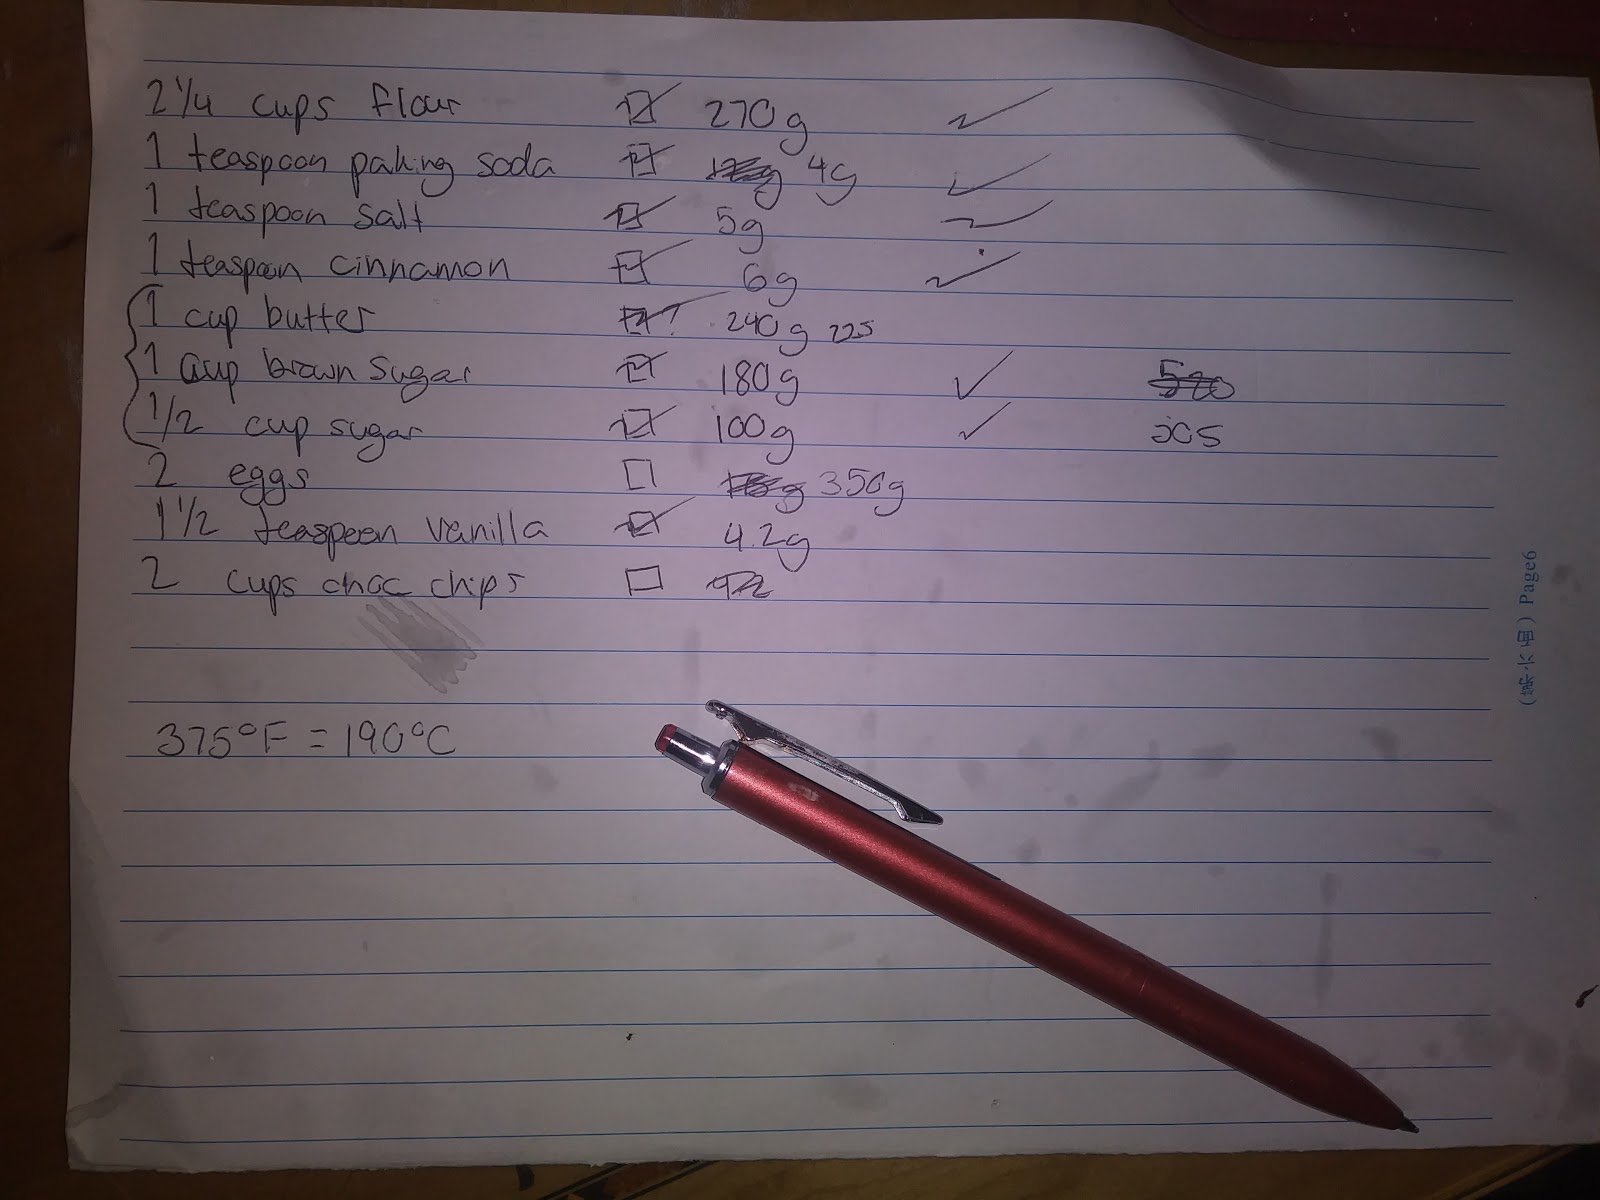 2 1/4 cups flour 270g
1 teaspoon paking soda 4g
1 teaspoon salt 5g
1 teaspoon cinnamon 6g
1 cup butter ? 240g 225
1 cup brown sugar 180g
1/2 cup sugar 100g
2 eggs 350g
1 1/2 teaspoon vanilla 4.2g
2 cups choc chips
375°F = 190°C
Page6